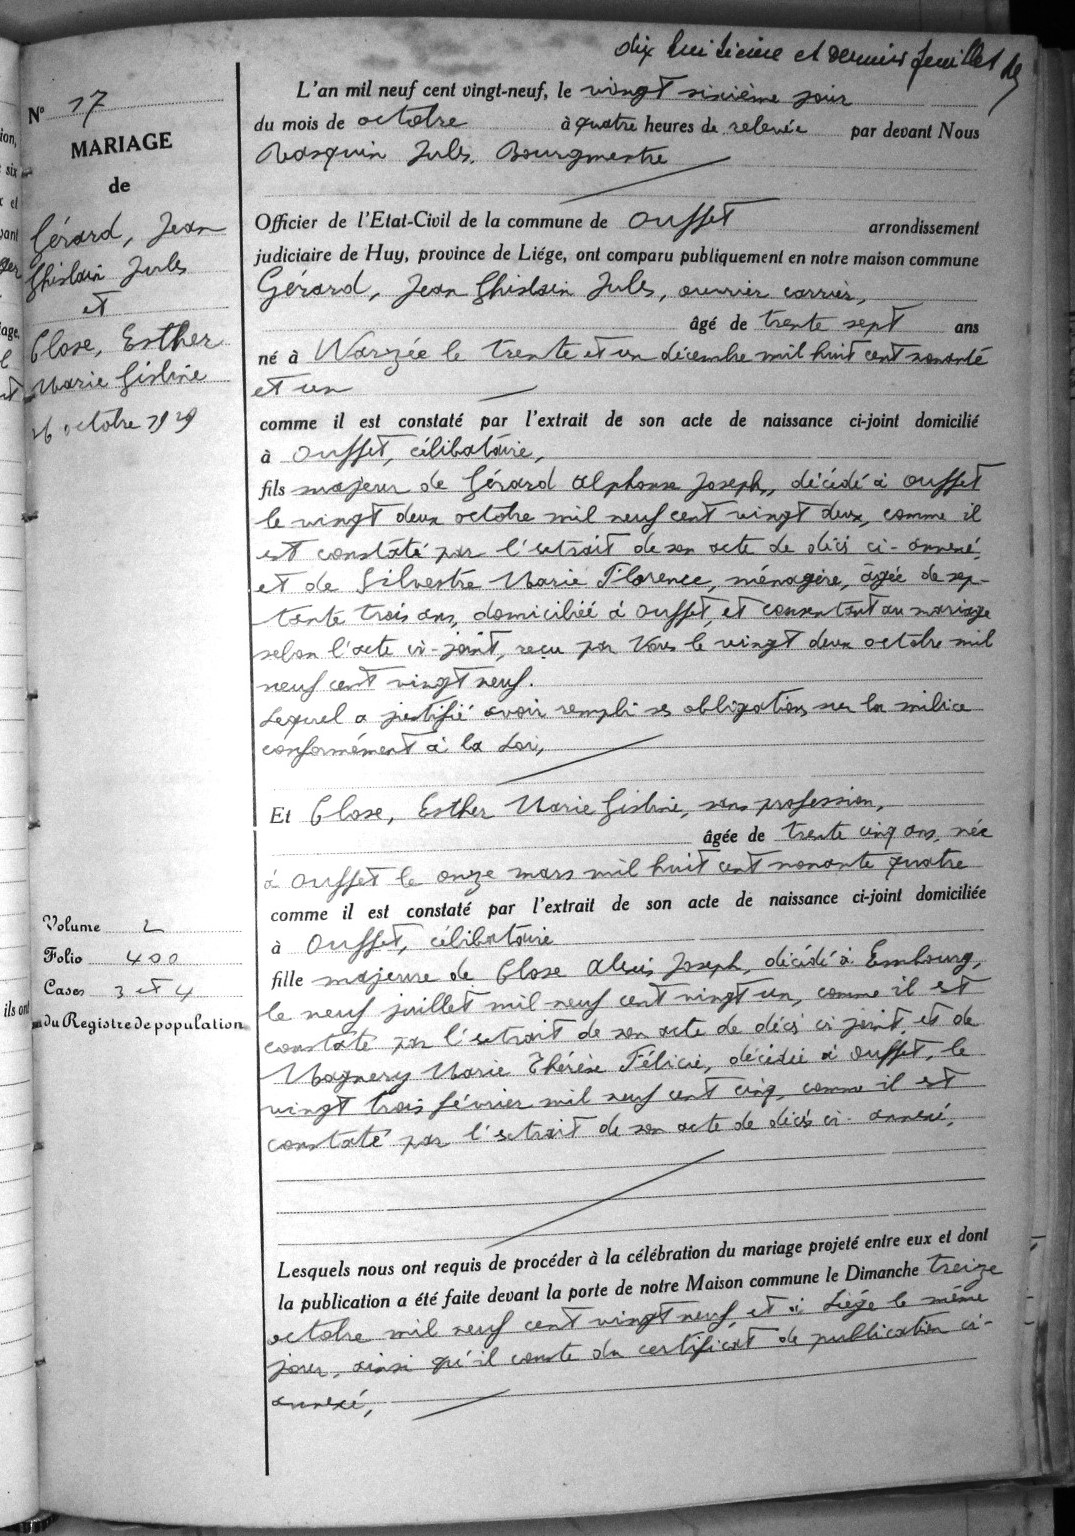 dix huitième et dernier feuillet
N° 17
MARIAGE
de
Gérard, Jean
Ghislain Jules
et
Close, Esther
Marie Gisline
26 octobre 1929
Volume 2
Folio 400
Cases 3 et 4
du Registre de population
L'an mil neuf cent vingt-neuf, le vingt sixième jour
du mois de octobre à quatre heures de relevée par devant Nous
Jules, Bourgmestre
Officier de l'Etat-Civil de la commune de Ouffet arrondissement
judiciaire de Huy, province de Liége, ont comparu publiquement en notre maison commune
Gérard, Jean Ghislain Jules, ouvrier carrier,
âgé de trente sept ans
né à Warzée le trente et un décembre mil huit cent nonante
et un
comme il est constaté par l'extrait de son acte de naissance ci-joint domicilié
à Ouffet, célibataire,
fils majeur de Gérard Alphonse Joseph, décédé à Ouffet
le vingt deux octobre mil neuf cent vingt deux, comme il
est constaté par l'extrait de son acte de décès ci-annexé,
et de Silvestre Marie Florence, ménagère, âgée de sep-
tante trois ans, domiciliée à Ouffet, et consentant au mariage
selon l'acte ci-joint, reçu par Nous le vingt deux octobre mil
neuf cent vingt neuf.
Lequel a justifié avoir rempli ses obligations sur la milice
conformément à la Loi,
Et Close, Esther Marie Gisline, sans profession,
âgée de trente cinq ans, née
à Ouffet le onze mars mil huit cent nonante quatre
comme il est constaté par l'extrait de son acte de naissance ci-joint domiciliée
à Ouffet, célibataire
fille majeure de Close Alexis Joseph, décédé à Embourg,
le neuf juillet mil neuf cent vingt un, comme il est
constaté par l'extrait de son acte de décès ci joint, et de
Magnery Marie Thérèse Félicie, décédée à Ouffet, le
vingt trois février mil neuf cent cinq, comme il est
constaté par l'extrait de son acte de décès ci-annexé,
Lesquels nous ont requis de procéder à la célébration du mariage projeté entre eux et dont
la publication a été faite devant la porte de notre Maison commune le Dimanche treize
octobre mil neuf cent vingt neuf, et à Liége le même
jour, ainsi qu'il conste du certificat de publication ci-
annexé,